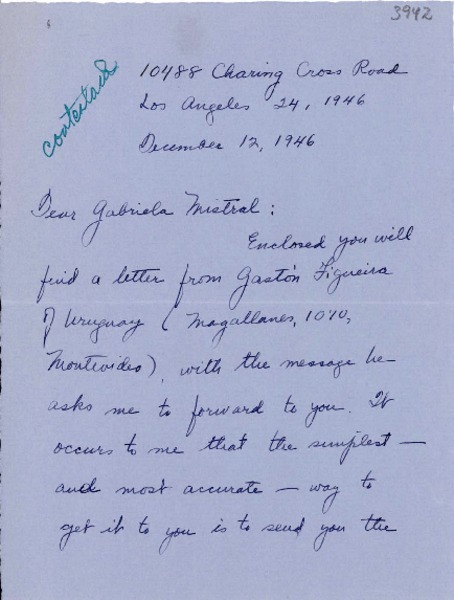 3942
contestada
10488 Charing Cross Road
Los Angeles 24, 1946
December 12, 1946
Dear Gabriela Mistral:
Enclosed you will
find a letter from Gastón Figueira
of Uruguay (Magallanes, 1070,
Montevideo), with the message he
asks me to forward to you. It
occurs to me that the simplest —
and most accurate — way to
get it to you is to send you the